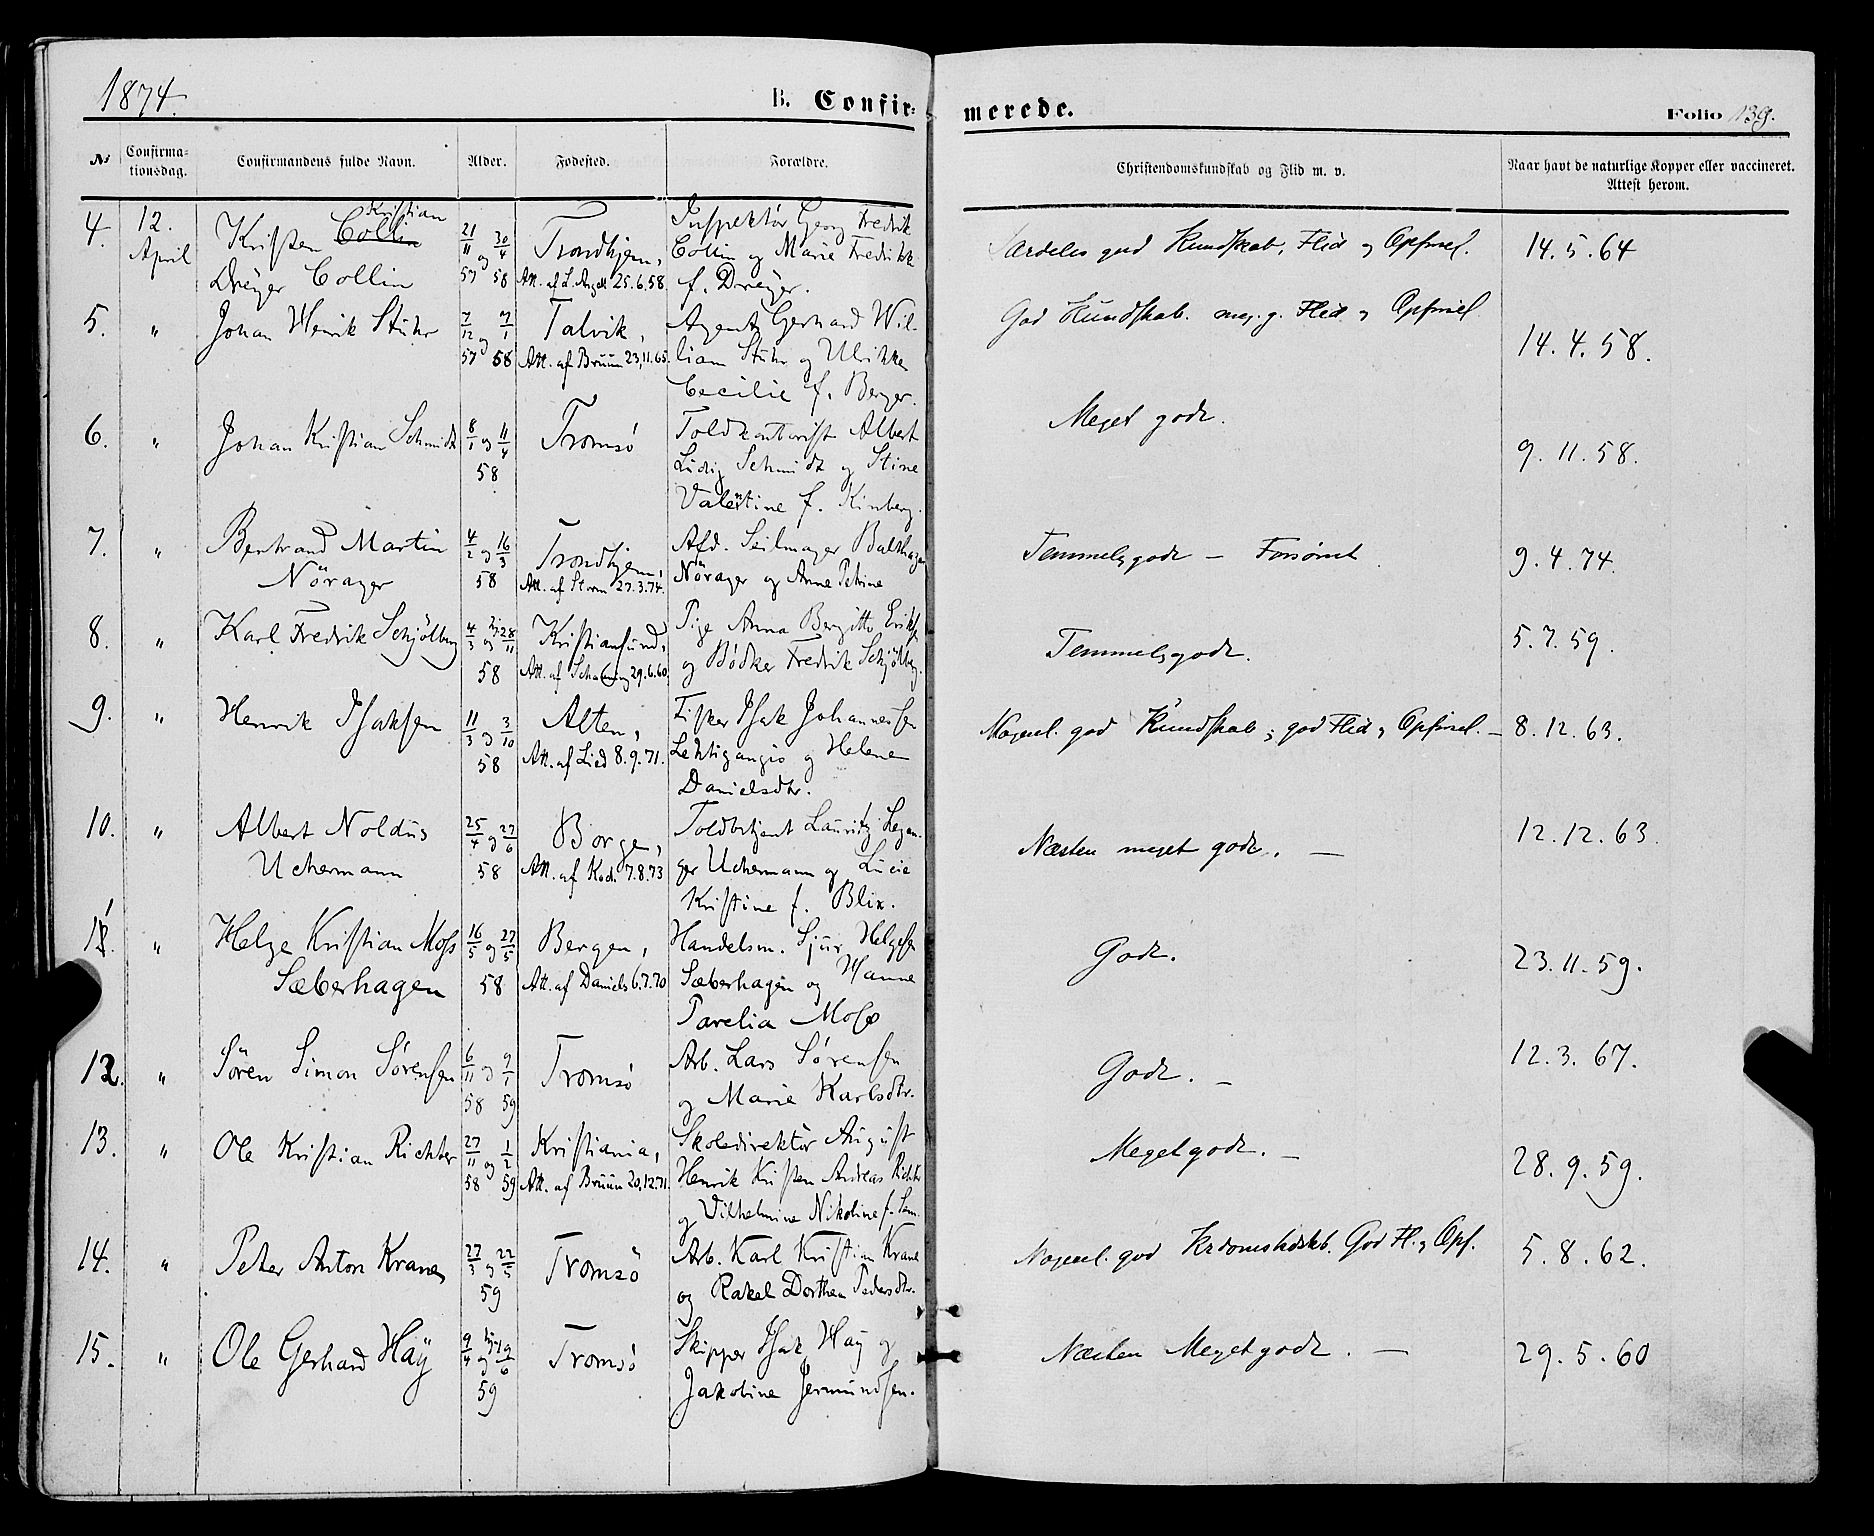 1874.
B. Confir-merede.
Folio 139.
№ Confirma-tionsdag. Confirmandens fulde Navn. Alder. Fødested. Forældre. Christendomskundskab og Flid m. v. Naar havt de naturlige Kopper eller vaccineret. Attest herom.
4. 12. April
Kristen Collin Kristian
Dreyer Collin
21/11 57 og 30/4 58
Trondhjem,
Att. af L. Angell 25.6.58.
Inspektör Georg Fredrik
Collin og Marie Fredrikke
f. Dreyer.
Særdeles god Kundskab, Flid og Opførsel.
14.5.64
5. "
Johan Henrik Stuhr
7/12 57 og 7/1 58
Talvik,
Att. af Bruun 23,11.65.
Agent Gerhard Wil-
liam Stuhr og Ulrikke
Cecilie f. Berger.
God Kundskab. meg. g. Flid og Opførsel
14.4.58.
6. "
Johan Kristian Schmidt
8/1 og 11/4
58
Tromsö
Toldkontorist Albert
Ludvig Schmidt og Stine
Valentine f. Kinberg.
Meget godt.
9.11.58.
7. "
Bertrand Martin
Nörager
4/2 og 16/3
58
Trondhjem,
Att. af Storm 27.3.74.
Afd. Seilmager Balthazar
Nörager og Anne Petrine
Temmelig godt – Forsømt.
9.4.74.
8. "
Karl Fredrik Schjölberg
4/3 og 28/11
58
Kristiansund,
Att. af 29.6.60.
Pige Anna Bergitte Eriks
og Bödker Fredrik Schjölberg.
Temmelig godt.
5.7.59.
9. "
Henrik Isaksen
11/3 og 3/10
58
Alten,
Att. af Lied 8.9.71.
Fisker Isak Johannesen
Lektigangio og Helene
Danielsdtr.
Nogenl. god Kundskab; god Flid og Opførsel. –
8.12.63.
10. "
Albert Noldus
Uchermann
25/4 og 27/6
58
Borge,
Att. af Kod. 7.8.73
Toldbetjent Lauritz Legan-
ger Uchermann og Lucie
Kristine f. Blix.
Næsten meget godt. –
12.12.63.
11. "
Helge Kristian Moss
Sæberhagen
16/5 og 27/5
58
Bergen,
Att. af Daniels 6.7.70
Handelsm. Sjur Helgesen
Sæberhagen og Hanne
Parelia Moss
Godt.
23.11.59.
12. "
Sören Simon Sörensen
6/11 58 og 9/1 59
Tromsö
Arb. Lars Sörensen
og Marie Karlsdtr.
Godt. –
12.3.67.
13. "
Ole Kristian Richter
27/11 58 og 1/2 59
Kristiania,
Att. af Bruun 20.12.71.
Skoledirektör August
Henrik Kristen Andreas Richter
og Vilhelmine Nikoline f. Sem.
Meget godt. –
28.9.59.
14. "
Peter Anton Krane
27/3 og 22/5
59
Tromsö
Arb. Karl Kristian Krane
og Rakel Dorthea Pedersdtr.
Nogenl. god Krdomskdskb. God Fl. og Opf.
5.8.62.
15. "
Ole Gerhard Häy
9/4 og 19/6
59
Tromsö
Skipper Isak Häy og
Jakobine Jermundsen.
Næsten Meget godt. –
29.5.60